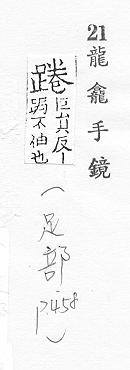 21 龍龕手鏡
踡
巨員反丨
跼不伸也
(足部 P458)